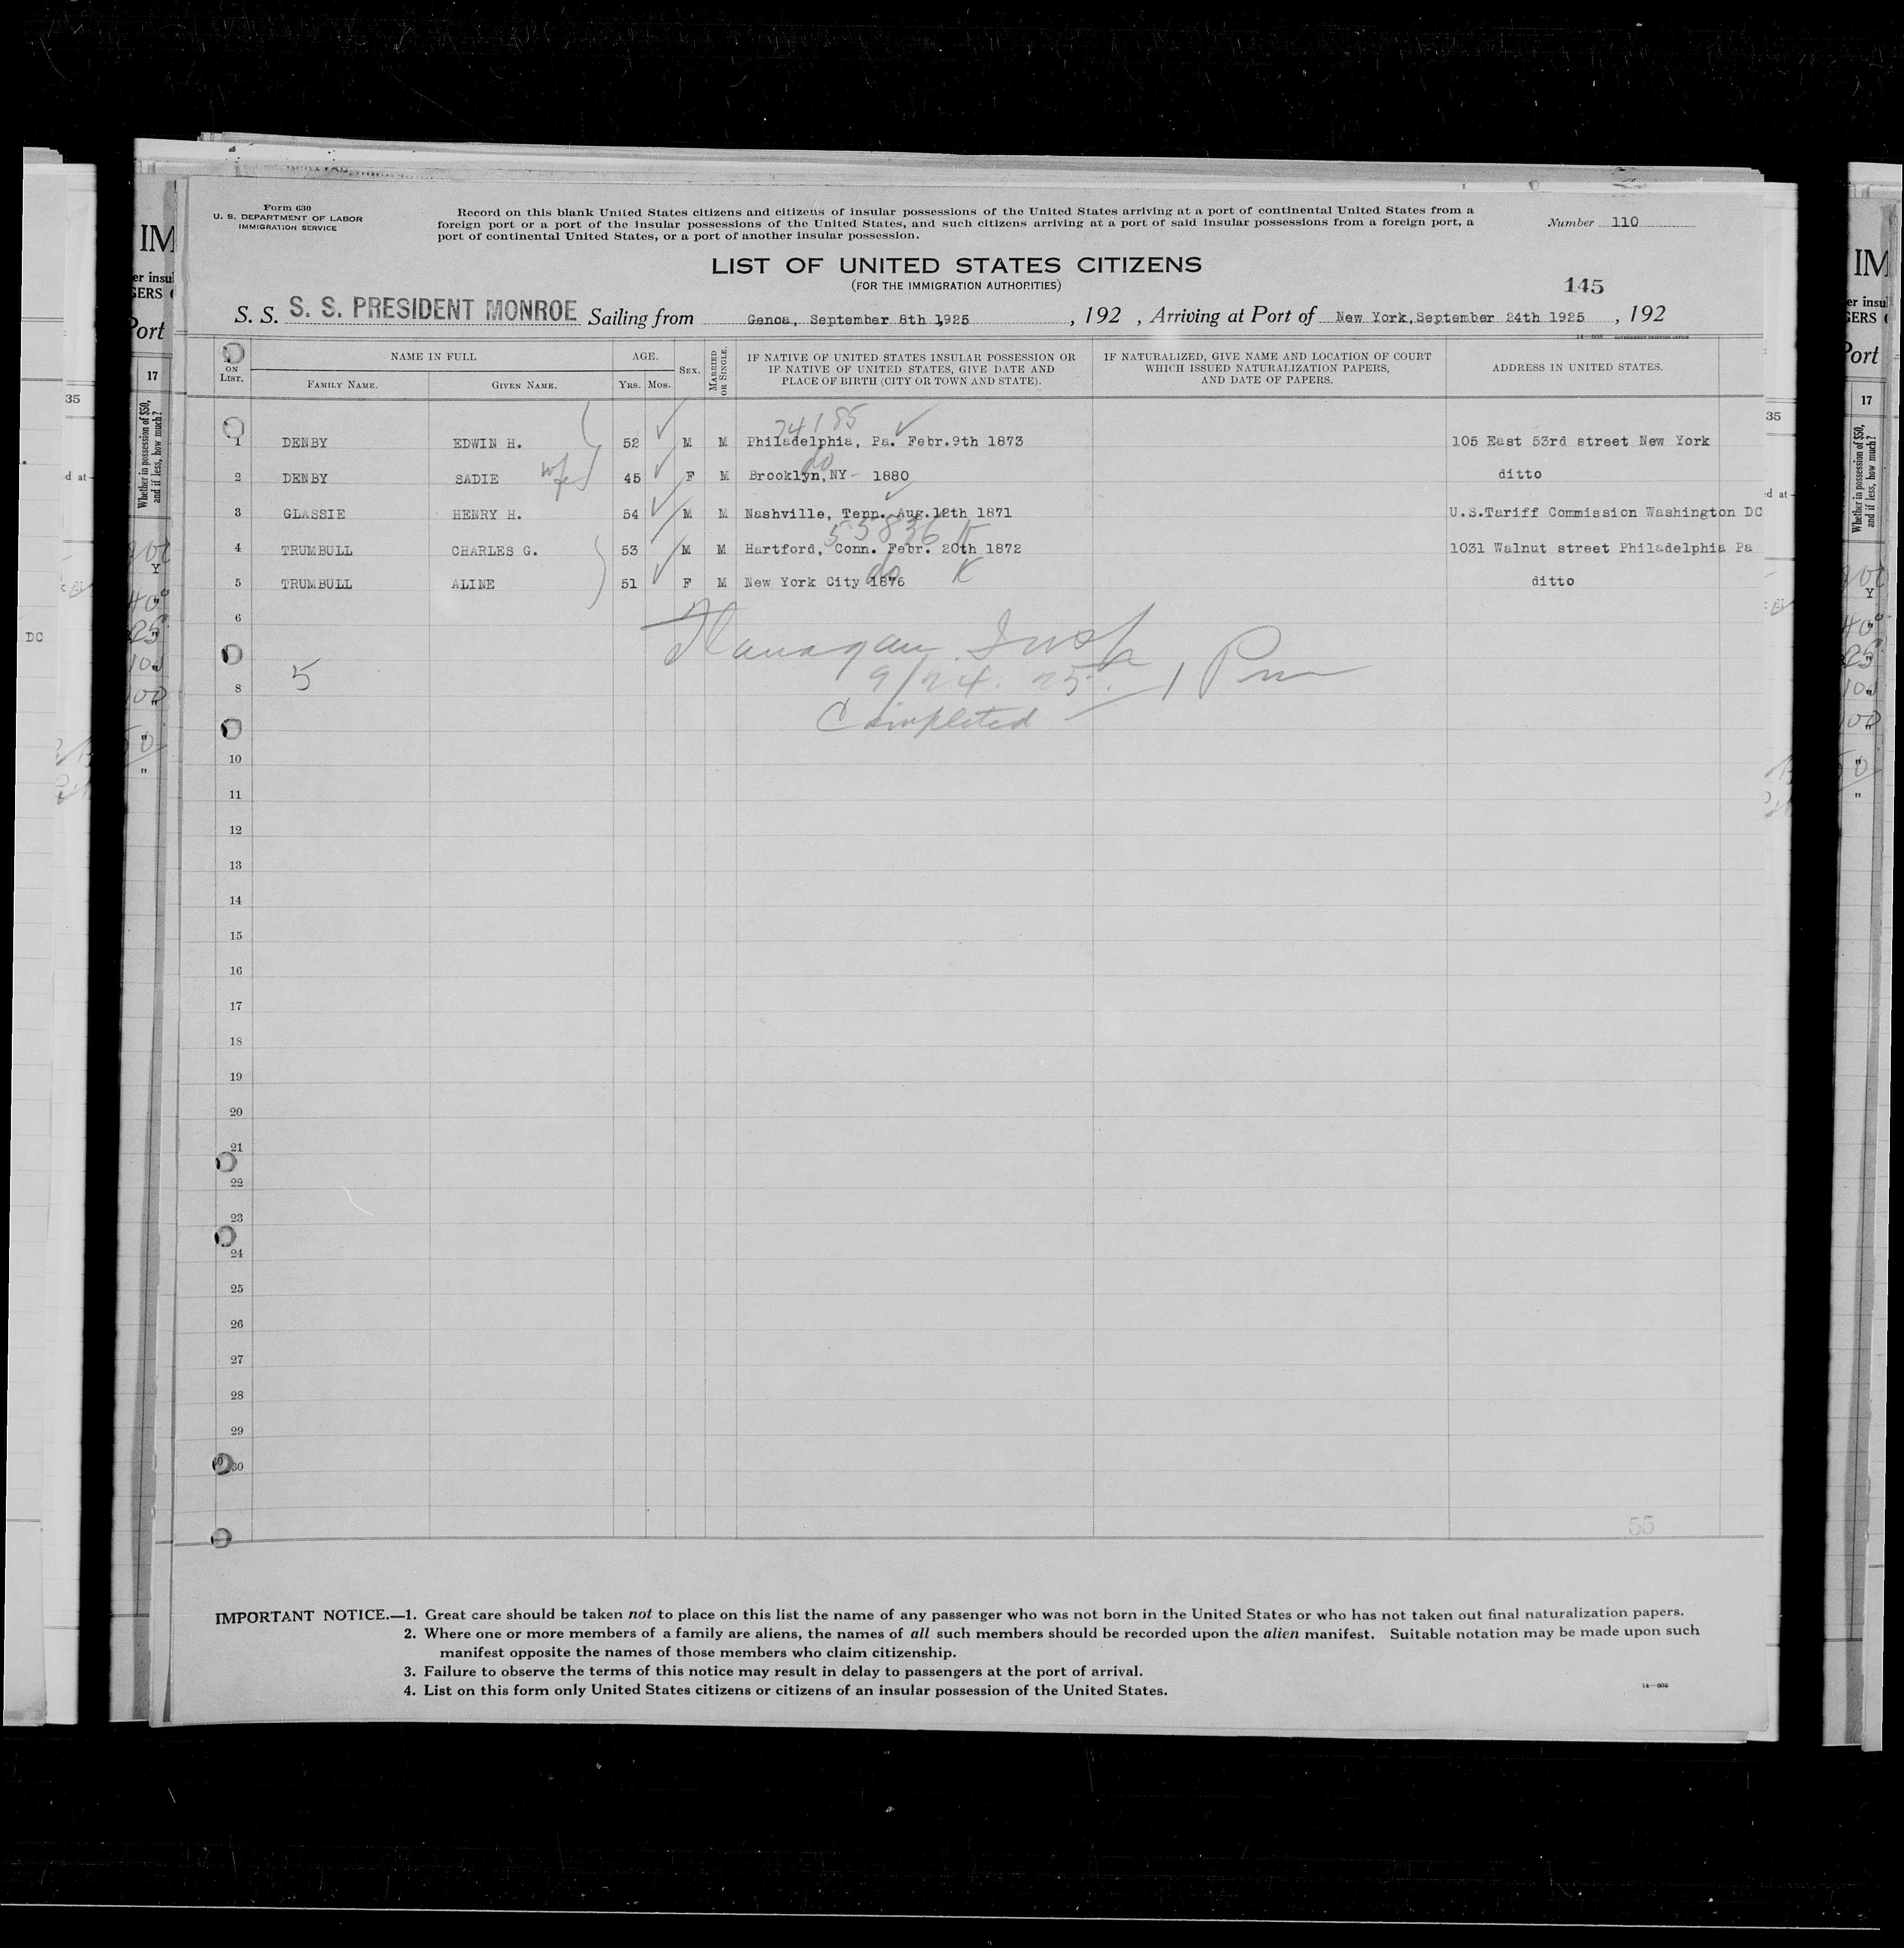 Form 630
U. S. DEPARTMENT OF LABOR
IMMIGRATION SERVICE
Record on this blank United States citizens and citizens of insular possessions of the United States arriving at a port of continental United States from a
foreign port or a port of the insular possessions of the United States, and such citizens arriving at a port of said insular possessions from a foreign port, a
port of continental United States, or a port of another insular possession.
Number 110
LIST OF UNITED STATES CITIZENS
(FOR THE IMMIGRATION AUTHORITIES)
145
S. S. S. S. PRESIDENT MONROE Sailing from Genoa, September 8th 1925, 192 , Arriving at Port of New York, September 24th 1925 , 192
NO. ON LIST. NAME IN FULL AGE. SEX. MARRIED OR SINGLE. IF NATIVE OF UNITED STATES INSULAR POSSESSION OR IF NATIVE OF UNITED STATES, GIVE DATE AND PLACE OF BIRTH (CITY OR TOWN AND STATE). IF NATURALIZED, GIVE NAME AND LOCATION OF COURT WHICH ISSUED NATURALIZATION PAPERS, AND DATE OF PAPERS. ADDRESS IN UNITED STATES.
FAMILY NAME. GIVEN NAME. YRS. MOS.
74185
1 DENBY EDWIN H. 52 M M Philadelphia, Pa. Febr.9th 1873 105 East 53rd street New York
wife do
2 DENBY SADIE 45 F M Brooklyn,NY- 1880 ditto
3 GLASSIE HENRY H. 54 M M Nashville, Tenn. Aug.18th 1871 U.S.Tariff Commission Washington DC
55836 K
4 TRUMBULL CHARLES G. 53 M M Hartford, Conn. Febr. 20th 1872 1031 Walnut street Philadelphia Pa
do K
5 TRUMBULL ALINE 51 F M New York City 1876 ditto
6
Flanagan Insp
5
8
9/24.25. 1 Pm
Completed
10
11
12
13
14
15
16
17
18
19
20
21
22
23
24
25
26
27
28
29
30
55
IMPORTANT NOTICE.—1. Great care should be taken not to place on this list the name of any passenger who was not born in the United States or who has not taken out final naturalization papers.
2. Where one or more members of a family are aliens, the names of all such members should be recorded upon the alien manifest. Suitable notation may be made upon such
manifest opposite the names of those members who claim citizenship.
3. Failure to observe the terms of this notice may result in delay to passengers at the port of arrival.
4. List on this form only United States citizens or citizens of an insular possession of the United States.
14—608